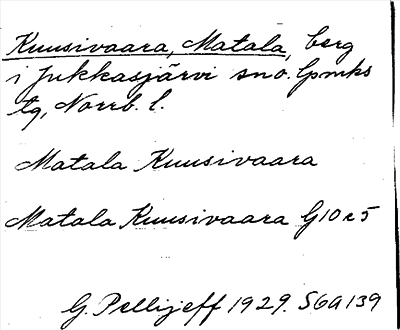 Kuusivaara, Matala, berg
i Jukkasjärvi sno. lpmks
tg, Norrb. l.
Matala Kuusivaara
Matala Kuusivaara G10 r5
G. Pellijeff 1929. S6A139